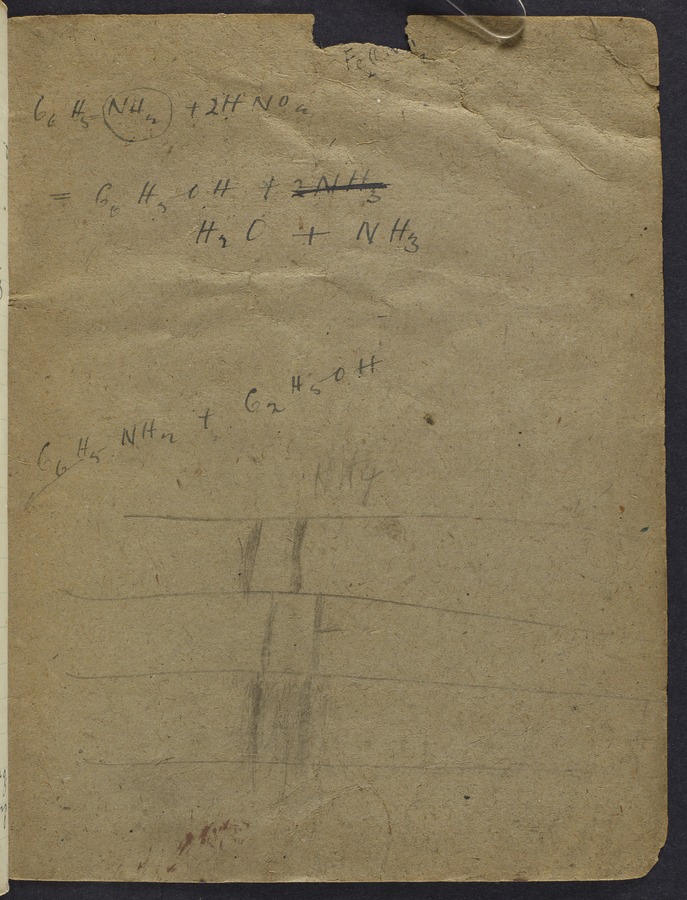 C6 H5 NH2 + 2H NO2
= C6 H5 OH + 2NH3
H2O + NH3
C6 H5 NH2 + C2 H5 OH
NH4